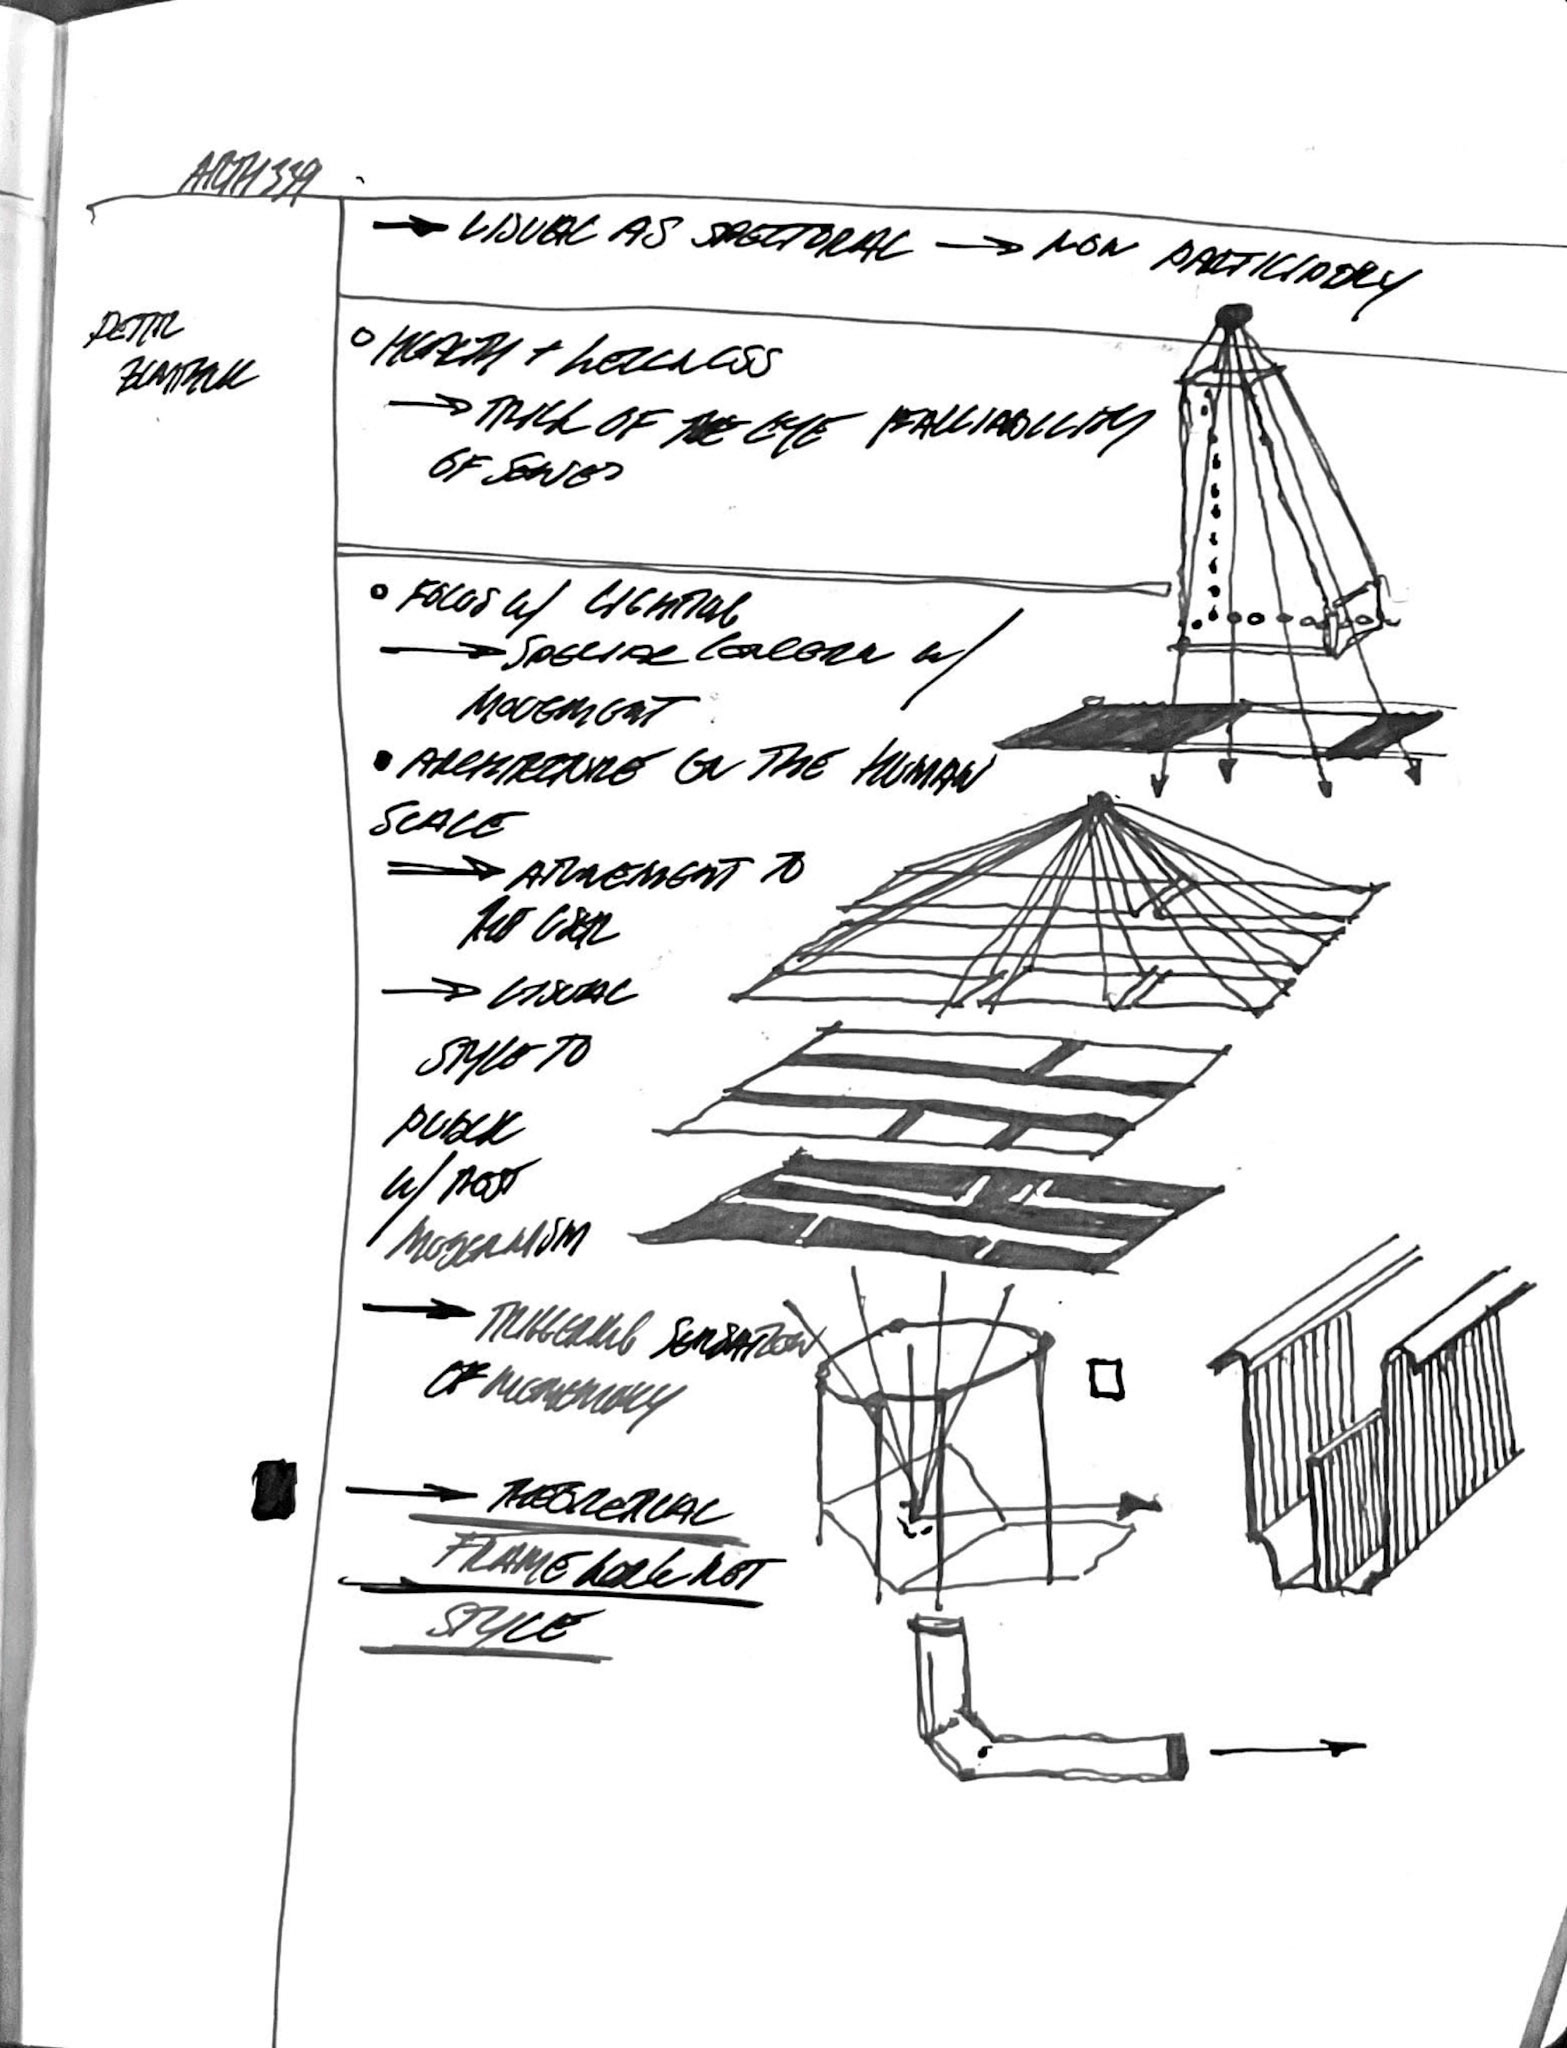 ARTH 339
→ VISUAL AS SPECTORAL → NON PARTICIPORY
PETER
○ HEALTH + WELLNESS
→ TRICK OF THE EYE FALLIABILITY
OF SENSES
• FOCUS W/ LIGHTING
→ SPECIAL CONCERN W/
MOVEMENT
• ARCHITECTURE ON THE HUMAN
SCALE
→ ATUNEMENT TO
THE USER
→ VISUAL
STYLE TO
PUBLIC
W/ POST
MODERNISM
→ TRIGGERING SENSATION
OF MEMEMORY
→ THEORETICAL
FRAMEWORK NOT
STYLE